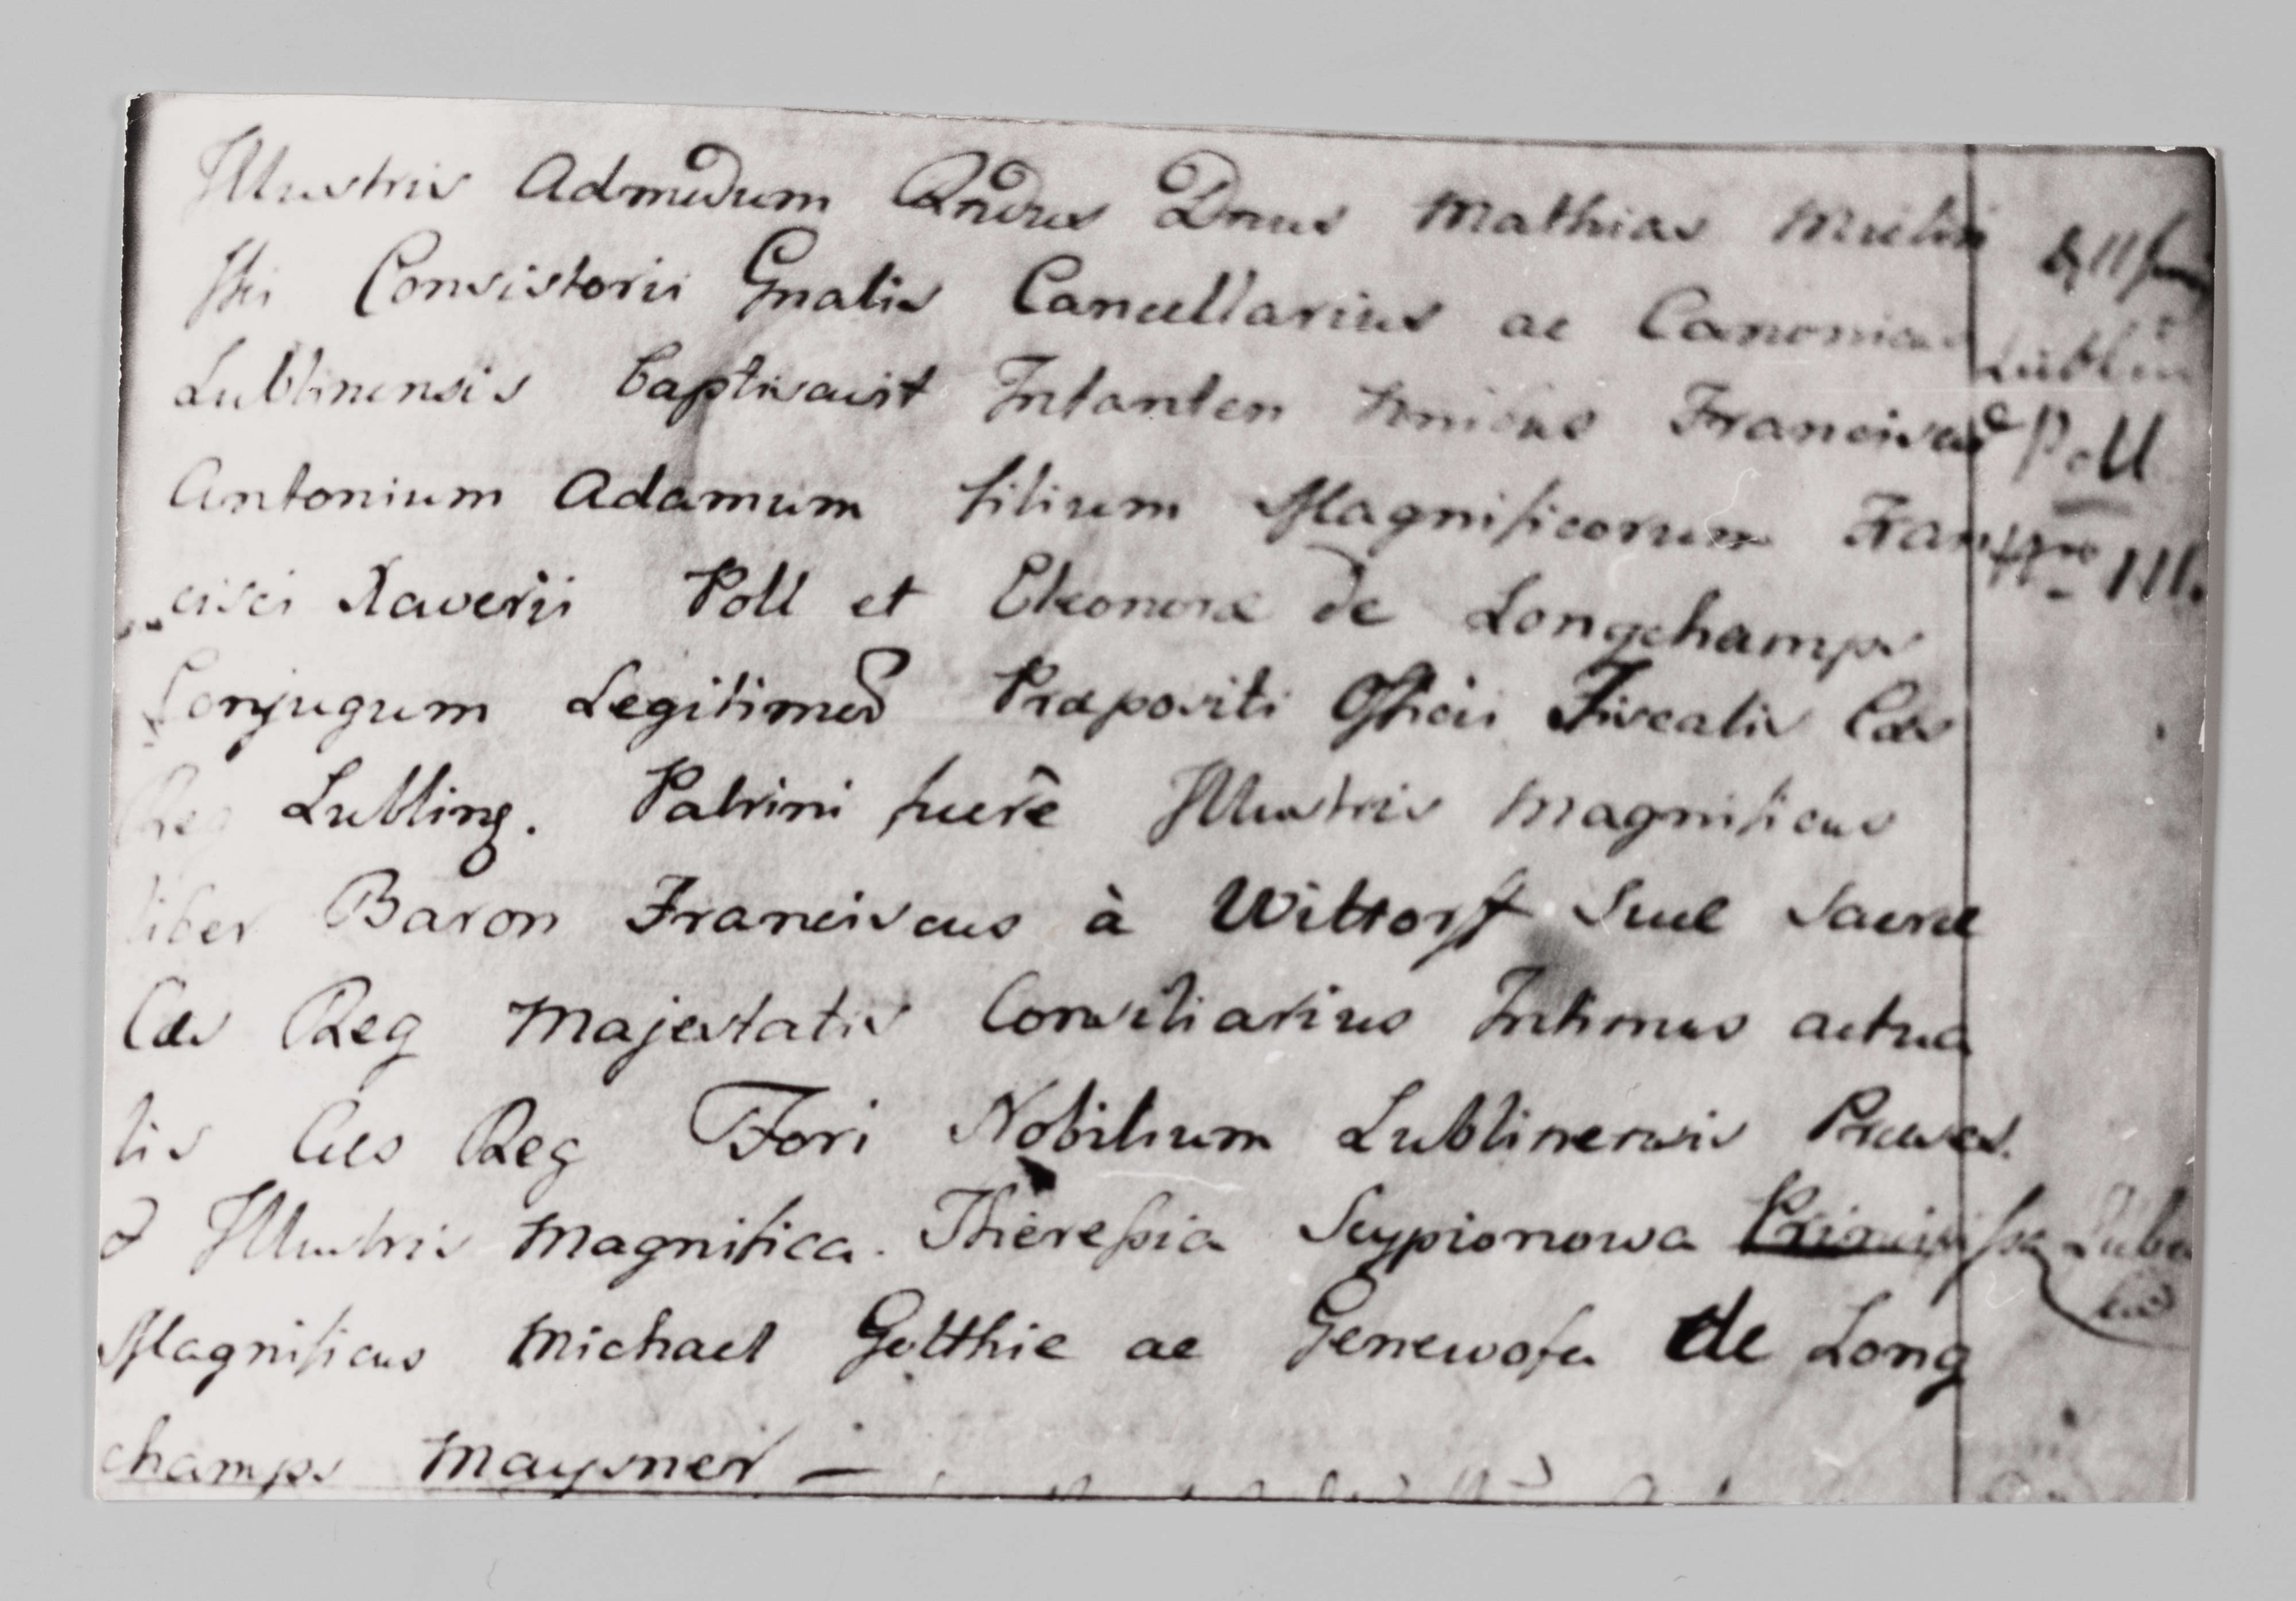 Illustris Admodum Rndus Dnus Mathias
Consistorii Gnalis Cancellarius ac Canonicus
Lublinensis baptisavit Infantem Franciscu
Antonium Adamum filium Magnificorum Fran
cisci Xaverii Poll et Eleonoræ de Longchamps
Conjugum Legitimor Præpositi Officii Fiscalis Cæs
Reg Lubling. Patrini fuere Illustris Magnificus
liber Baron Franciscus à Wittorff Suæ Sacræ
Cæs Reg Majestatis Consiliarius Intimus actua
lis Cæs Reg Fori Nobilium Lublinensis Præses.
& Illustris Magnifica. Theressia Scypionowa Principissa Lubo
Magnificus Michael Gotthie ac Genewofa de Long
champs Maysner —
Lublin
Poll